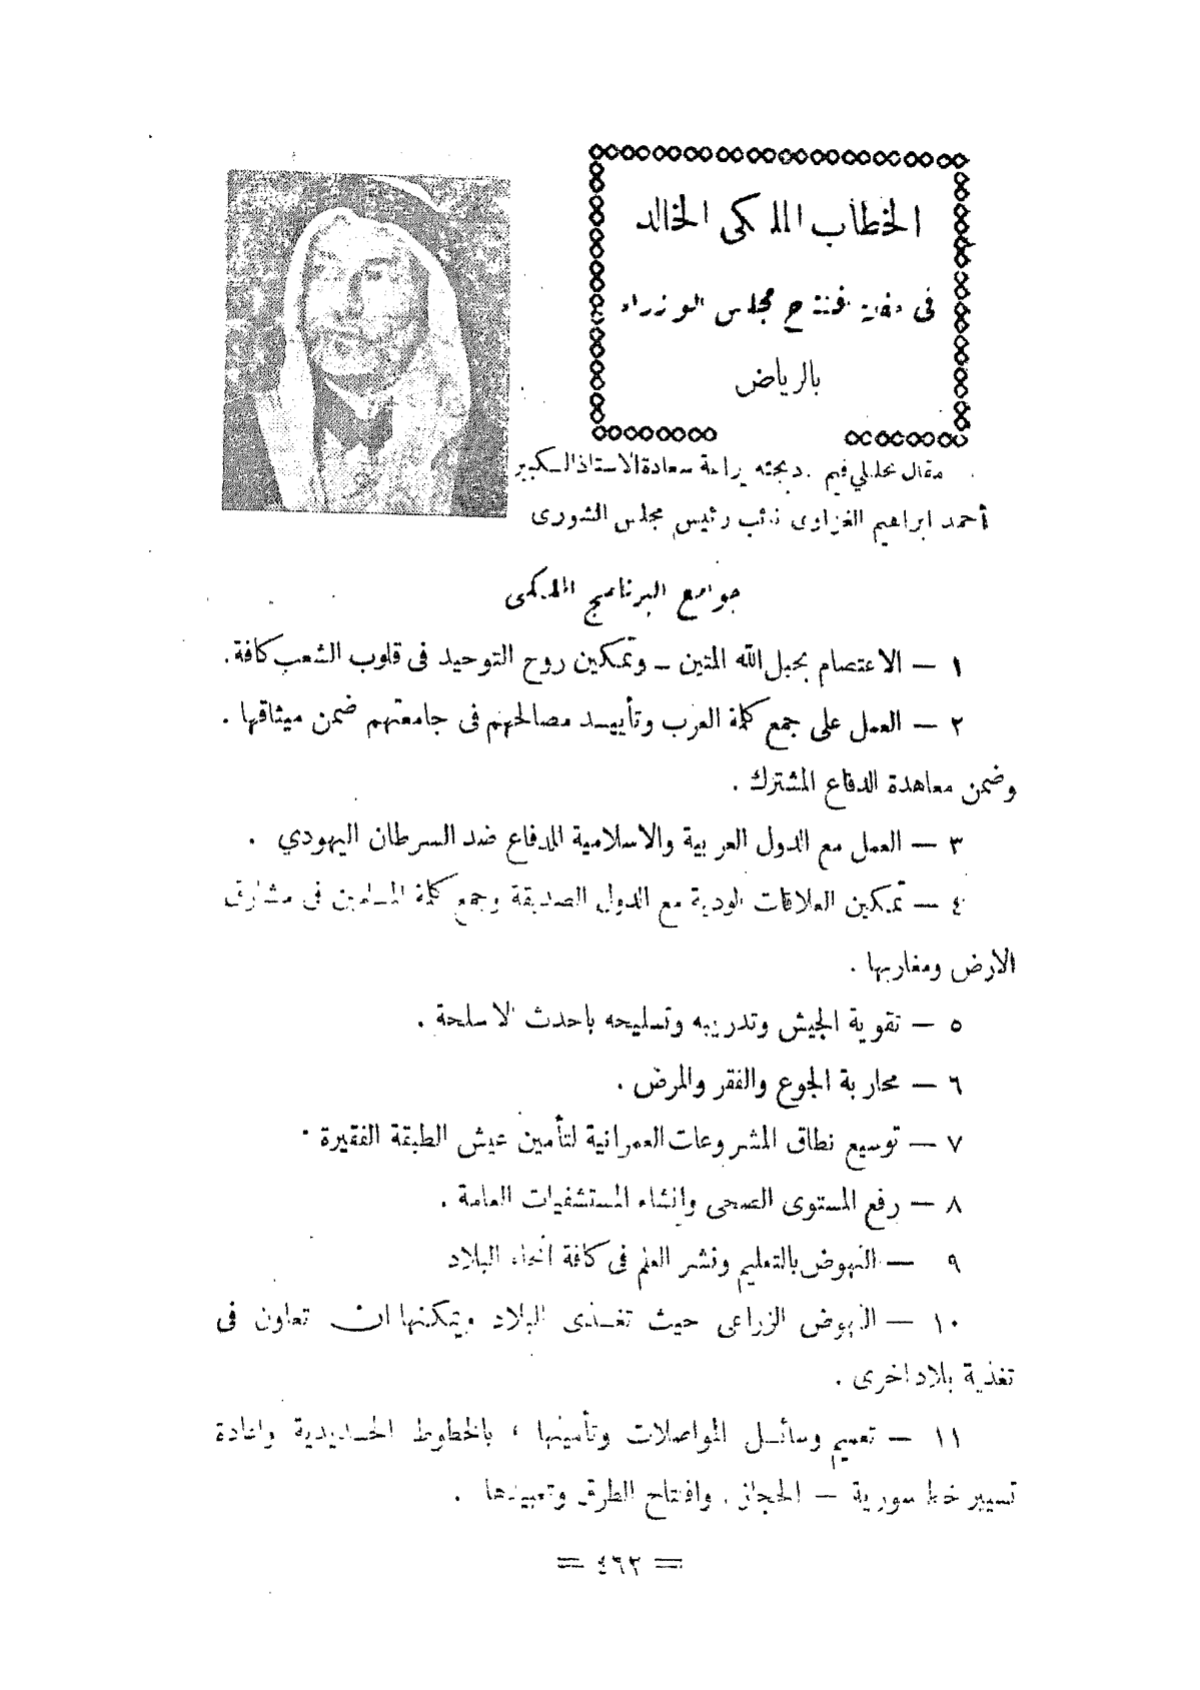 الخطاب الملكى الخالد
فى حفلة افتتاح مجلس الوزراء
بالرياض
مقال تحليلي قيم . دبجته يراعة سعادة الاستاذ الكبير
أحمد ابراهيم الغزاوى نائب رئيس مجلس الشورى
جوامع البرنامج الملكى
١ — الاعتصام بحبل الله المتين — وتمكين روح التوحيد فى قلوب الشعب كافة .
٢ — العمل على جمع كلمة العرب وتأييد مصالحهم فى جامعتهم ضمن ميثاقها .
وضمن معاهدة الدفاع المشترك .
٣ — العمل مع الدول العربية والاسلامية للدفاع ضد السرطان اليهودي .
٤ — تمكين العلاقات الودية مع الدول الصديقة وجمع كلمة المسلمين فى مشارق
الارض ومغاربها .
٥ — تقوية الجيش وتدريبه وتسليحه باحدث الاسلحة .
٦ — محاربة الجوع والفقر والمرض .
٧ — توسيع نطاق المشروعات العمرانية لتأمين عيش الطبقة الفقيرة .
٨ — رفع المستوى الصحى وانشاء المستشفيات العامة .
٩ — النهوض بالتعليم ونشر العلم فى كافة أنحاء البلاد
١٠ — النهوض الزراعى حيث تغذى البلاد ويمكنها ان تعاون فى
تغذية بلاد اخرى .
١١ — تعميم وسائل المواصلات وتأمينها ، بالخطوط الحديدية واعادة
تسيير خط سورية — الحجاز . وافتتاح الطرق وتعبيدها .
= ٤٦٢ =